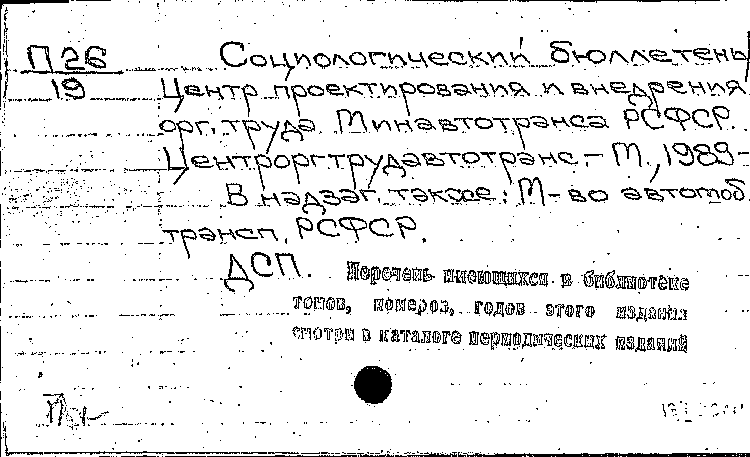 П 26
19
Социологический бюллетень/
Центр проектирования и внедрения
орг. труда Минавтотранса РСФСР.
Центроргтрудавтотранс. - М., 1989-
В надзаг. также: М-во автомоб.
трансп. РСФСР.
ДСП.
Перечень имеющихся в библиотеке
томов, номеров, годов этого издания
смотри в каталоге периодических изданий